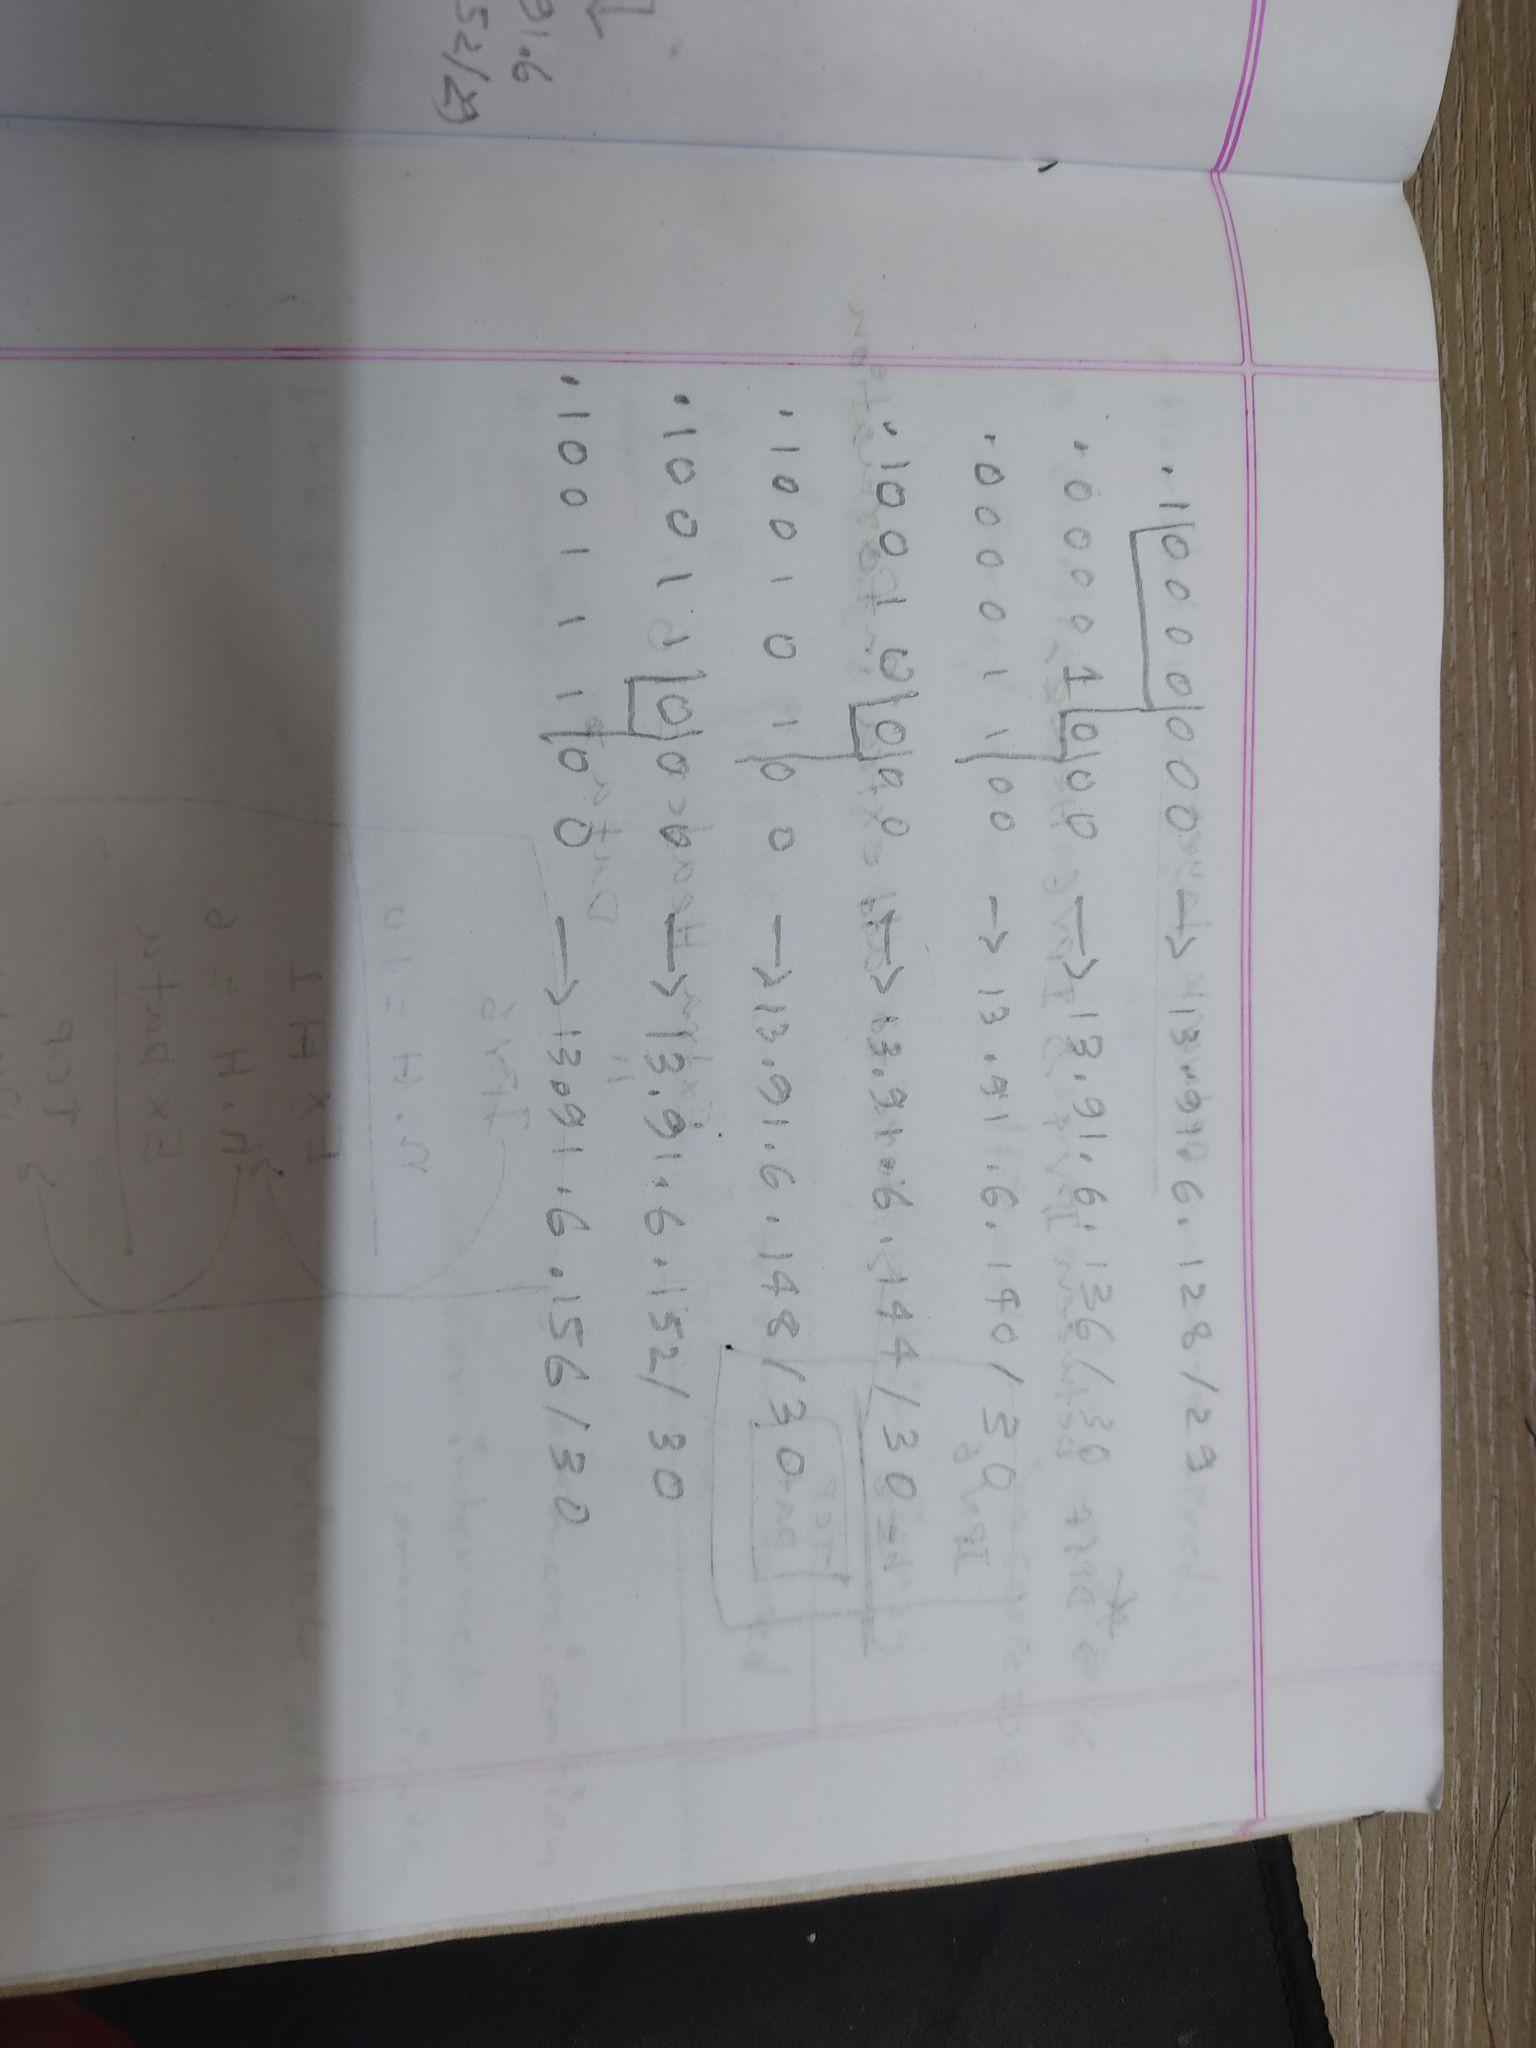 91.6
52/29
.1|0000|000 → 13.91.6.128/29
.00001|0|00 → 13.91.6.136/30
.000011|00 → 13.91.6.140/30
.10010|0|00 → 13.91.6.144/30
.100101|00 → 13.91.6.148/30
.10011|0|00 → 13.91.6.152/30
.100111|00 → 13.91.6.156/30